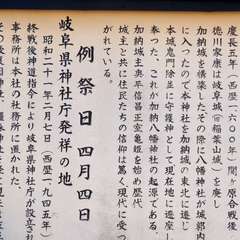 慶長五年(西暦一六〇〇年)関ヶ原合戦後
徳川家康は岐阜城(旧稲葉山城)を廃し
加納城を構築したその際八幡神社が城郭内
に入ったので本神社を加納城の東北に遷し
本城鬼門除並に守護神として現在地に遷座し
奉った、これが加納八幡神社の起源である。
加納城主奥平信昌正室亀姫を始め歴代
城主と共に住民たちの信仰は篤く現代に受つ
がれている。
例祭日 四月四日
岐阜県神社庁発祥の地
昭和二十一年二月七日(西暦一九四五年)
終戦後神道指令により岐阜県神社庁が設立され
事務所は本社の社務所に置かれた。